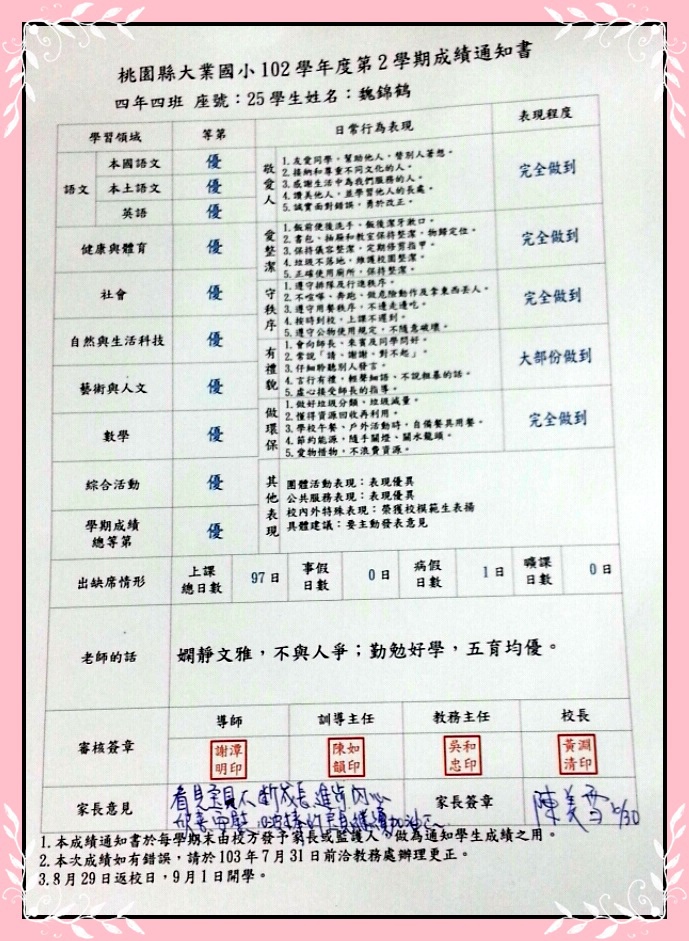 桃園縣大業國小102學年度第2學期成績通知書
四年四班 座號：25學生姓名：魏錦鶴
學習領域 等第 日常行為表現 表現程度
語文 本國語文 優
本土語文 優
英語 優
敬愛人
1.友愛同學，幫助他人，替別人著想。
2.接納和尊重不同文化的人。
3.感謝生活中為我們服務的人。
4.讚美他人，並學習他人的長處。
5.誠實面對錯誤，勇於改正。
完全做到
健康與體育 優
愛整潔
1.飯前便後洗手，飯後潔牙漱口。
2.書包、抽屜和教室保持整潔，物歸定位。
3.保持儀容整潔，定期修剪指甲。
4.垃圾不落地，維護校園整潔。
5.正確使用廁所，保持整潔。
完全做到
社會 優
守秩序
1.遵守排隊及行進秩序。
2.不喧嘩、奔跑、做危險動作及拿東西丟人。
3.遵守用餐秩序，不邊走邊吃。
4.按時到校，上課不遲到。
5.遵守公物使用規定，不隨意破壞。
完全做到
自然與生活科技 優
有禮貌
1.會向師長、來賓及同學問好。
2.常說「請、謝謝、對不起」。
3.仔細聆聽別人發言。
4.言行有禮，輕聲細語、不說粗暴的話。
5.虛心接受師長的指導。
大部份做到
藝術與人文 優
數學 優
做環保
1.做好垃圾分類，垃圾減量。
2.懂得資源回收再利用。
3.學校午餐、戶外活動時，自備餐具用餐。
4.節約能源，隨手關燈、關水龍頭。
5.愛物惜物，不浪費資源。
完全做到
綜合活動 優
學期成績
總等第 優
其他表現
團體活動表現：表現優異
公共服務表現：表現優異
校內外特殊表現：榮獲校模範生表揚
具體建議：要主動發表意見
出缺席情形 上課總日數 97日 事假日數 0日 病假日數 1日 曠課日數 0日
老師的話 嫻靜文雅，不與人爭；勤勉好學，五育均優。
審核簽章 導師 訓導主任 教務主任 校長
謝潭明印 陳如韻印 吳和忠印 黃淵清印
家長意見 看見寶貝不斷成長進步內心
家長簽章 陳美雪 6/30
1.本成績通知書於每學期末由校方發予家長或監護人，做為通知學生成績之用。
2.本次成績如有錯誤，請於103年7月31日前洽教務處辦理更正。
3.8月29日返校日，9月1日開學。